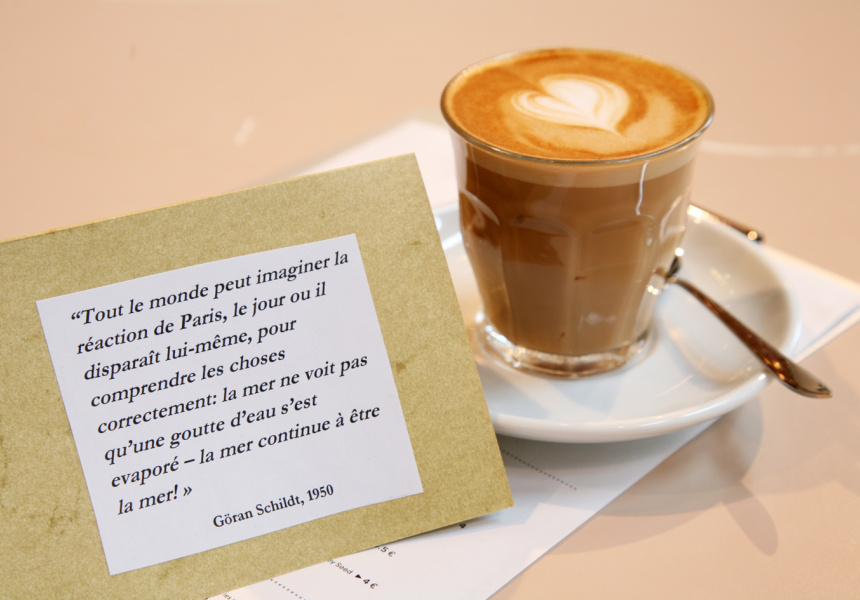 “Tout le monde peut imaginer la
réaction de Paris, le jour ou il
disparaît lui-même, pour
comprendre les choses
correctement: la mer ne voit pas
qu’une goutte d’eau s’est
evaporé – la mer continue à être
la mer! »
Göran Schildt, 1950
.5 €
Seed ►4 €